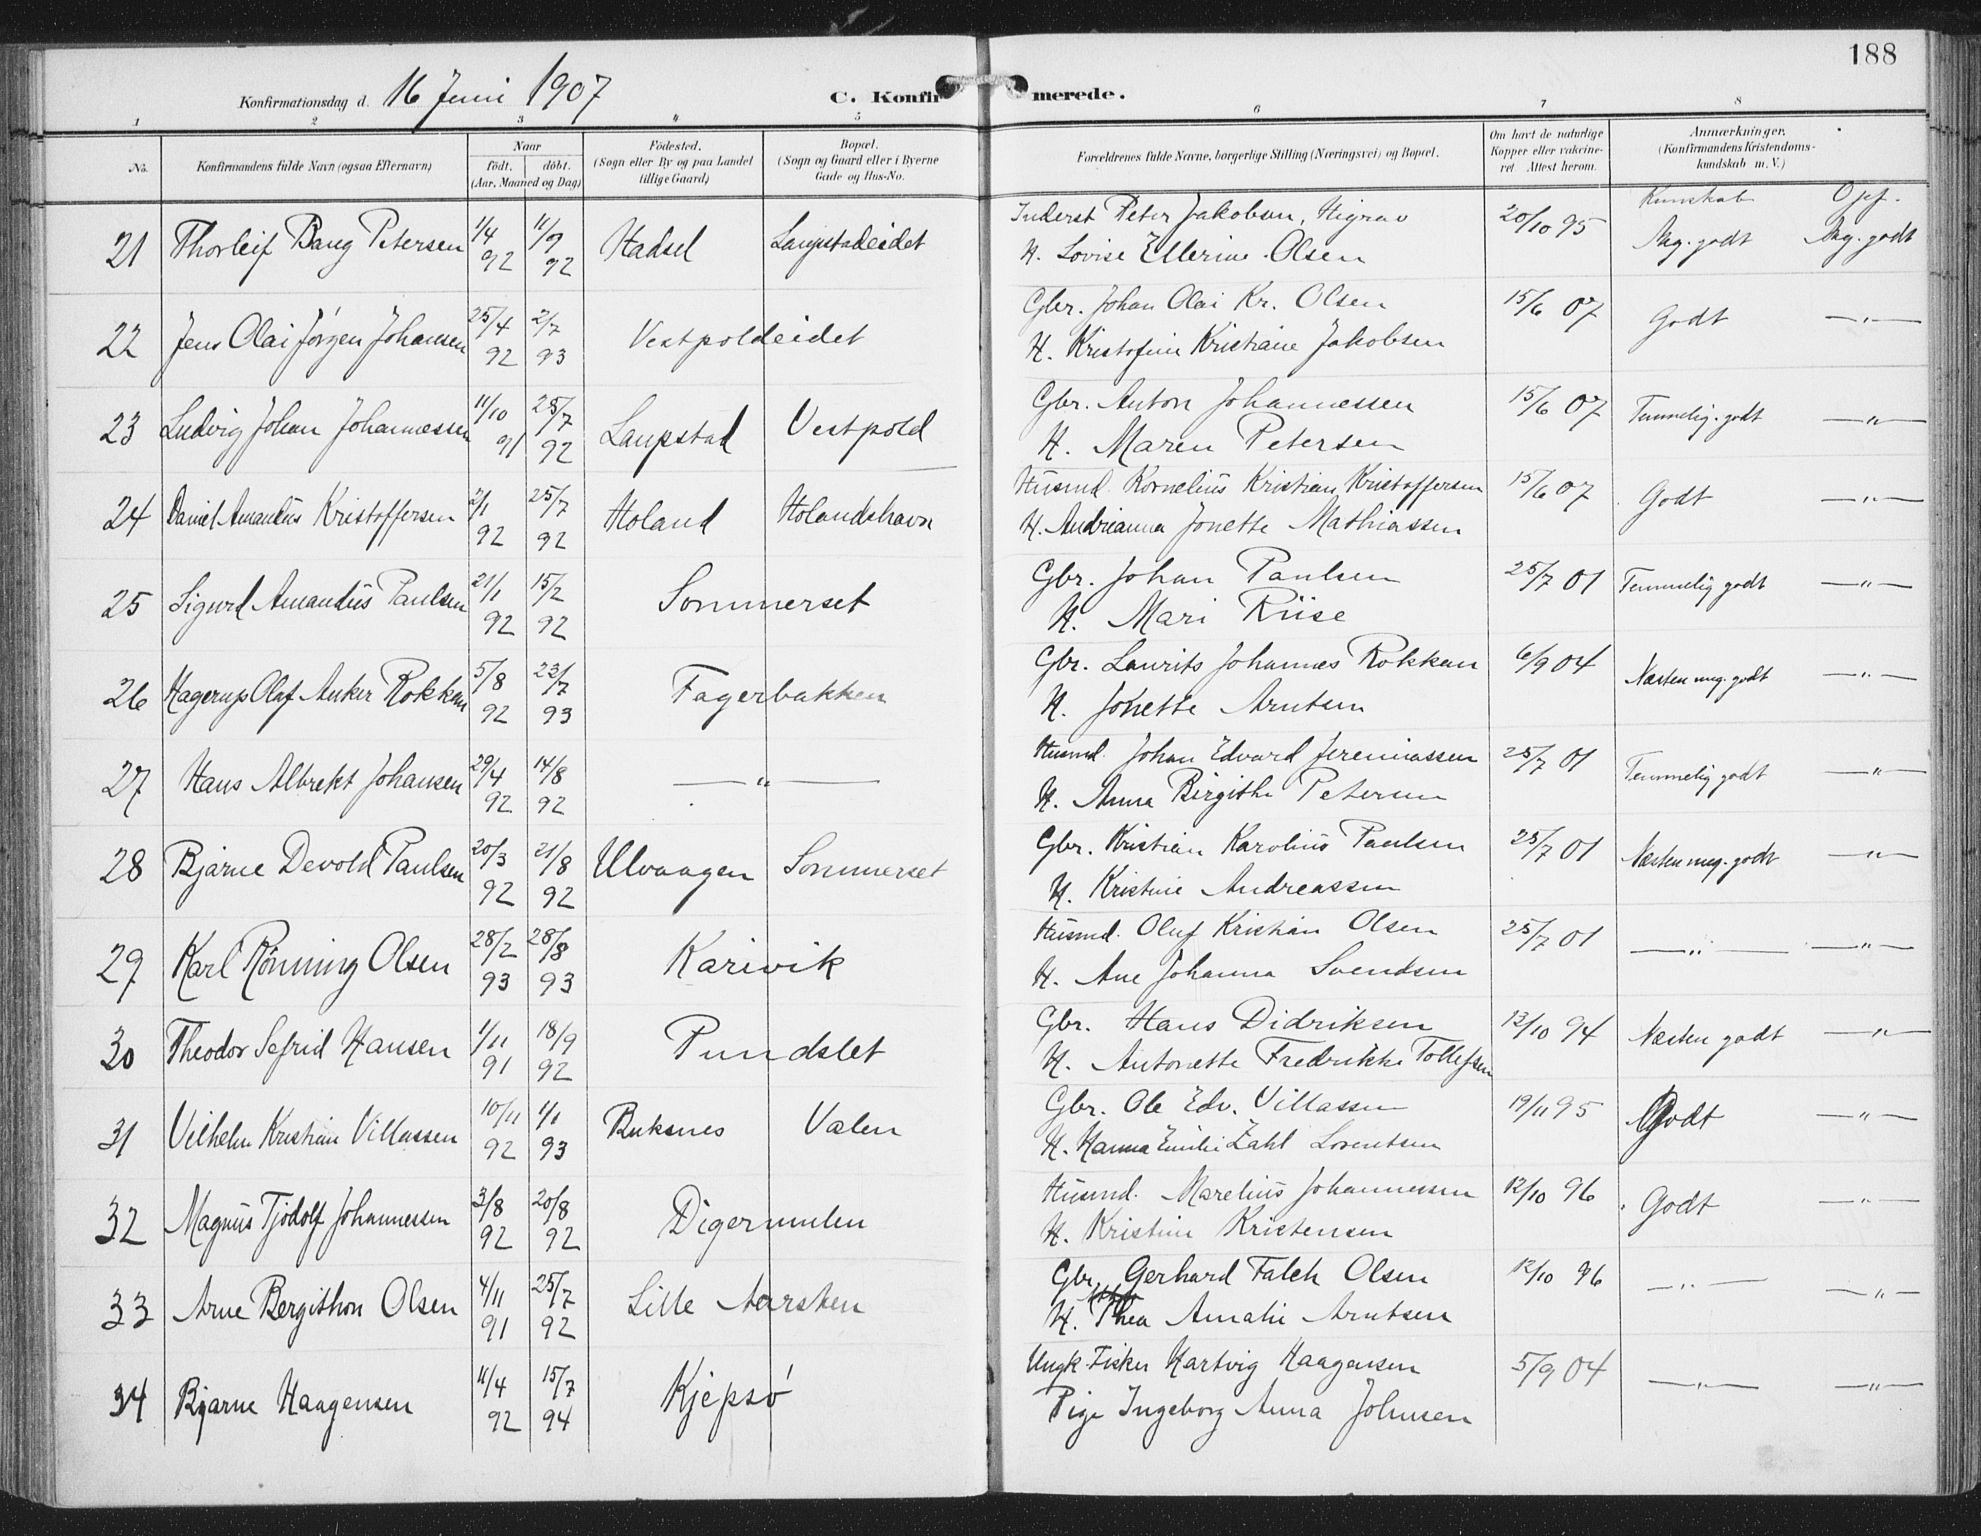 188
Konfirmationsdag d. 16 Juni 1907
C. Konfir merede.
1 2 3 4 5 6 7 8
No. Konfirmandens fulde Navn (ogsaa Efternavn) Naar födt. döbt. (Aar, Maaned og Dag) Födested. (Sogn eller By og paa Landet tillige Gaard) Bopæl. (Sogn og Gaard eller i Byerne Gade og Hus-No. Forældrenes fulde Navne, borgerlige Stilling (Næringsvei) og Bopæl. Om havt de naturlige Kopper eller vakcineret Attest herom. Anmærkninger. (Konfirmandens Kristendomskundskab m. V.)
Kunskab Opf.
21 Thorleif Bang Petersen 1/4 92 11/9 92 Hadsel Laupstadeidet Inderst Peter Jakobsen, Higrav 20/10 95 Mg. godt Mg. godt
H. Lovise Ellerine Olsen
22 Jens Olai Jörgen Johansen 25/4 92 2/7 93 Vestpoldeidet Gbr. Johan Olai Kr. Olsen 15/6 07 Godt — " —
H. Kristofine Kristiane Jakobsen
23 Ludvig Johan Johannessen 11/10 91 25/7 92 Laupstad Vestpold Gbr. Anton Johannessen 15/6 07 Temmelig. godt — " —
H. Maren Petersen
24 Daniel Amandus Kristoffersen 2/1 92 25/7 92 Holand Holandshavn Husmd. Kornelius Kristian Kristoffersen 15/6 07 Godt — " —
H. Andrianna Jonette Mathiassen
25 Sigurd Amandus Paulsen 21/1 92 15/2 92 Sommerset Gbr. Johan Paulsen 25/7 01 Temmelig godt — " —
H. Mari Riise
26 Hagerup Olaf Anker Rokkan 5/8 92 23/7 93 Fagerbakken Gbr. Laurits Johannes Rokkan 6/9 04 Næsten meg. godt — " —
H. Jonette Arntsen
27 Hans Albrekt Johansen 29/4 92 14/8 92 — " — Husmd. Johan Edvard Jeremiassen 25/7 01 Temmelig godt — " —
H. Anna Birgithe Petersen
28 Bjarne Devold Paulsen 20/3 92 21/8 92 Ulvaagen Sommerset Gbr. Kristian Karolius Paulsen 25/7 01 Næsten meg. godt — " —
H. Kristine Andreassen
29 Karl Rönning Olsen 28/2 93 28/8 93 Karivik Husmd. Oluf Kristian Olsen 25/7 01 — " — — " —
H. Ane Johanna Svendsen
30 Theodor Sefrid Hansen 1/11 91 18/9 92 Pundslet Gbr. Hans Didriksen 12/10 94 Næsten godt — " —
H. Antonette Fredrikke Tollefsen
31 Vilhelm Kristian Villassen 10/11 92 1/1 93 Buksnes Valen Gbr. Ole Edv. Villassen 19/11 95 Godt — " —
H. Hanna Emilie Zahl Lorentsen
32 Magnus Tjodolf Johannessen 3/8 92 20/8 92 Digermulen Husmd. Marelius Johannessen 12/10 96 Godt — " —
H. Kristine Kristensen
33 Arne Bergithon Olsen 4/11 91 25/7 92 Lille Aarsten Gbr. Gerhard Falch Olsen 12/10 96 — " — — " —
H. Thea Amalie Arntsen
34 Bjarne Haagensen 11/4 92 15/7 94 Kjepsö Ungk. Fisker Hartvig Haagensen 5/9 04 — " — — " —
Pige Ingeborg Anna Johnsen